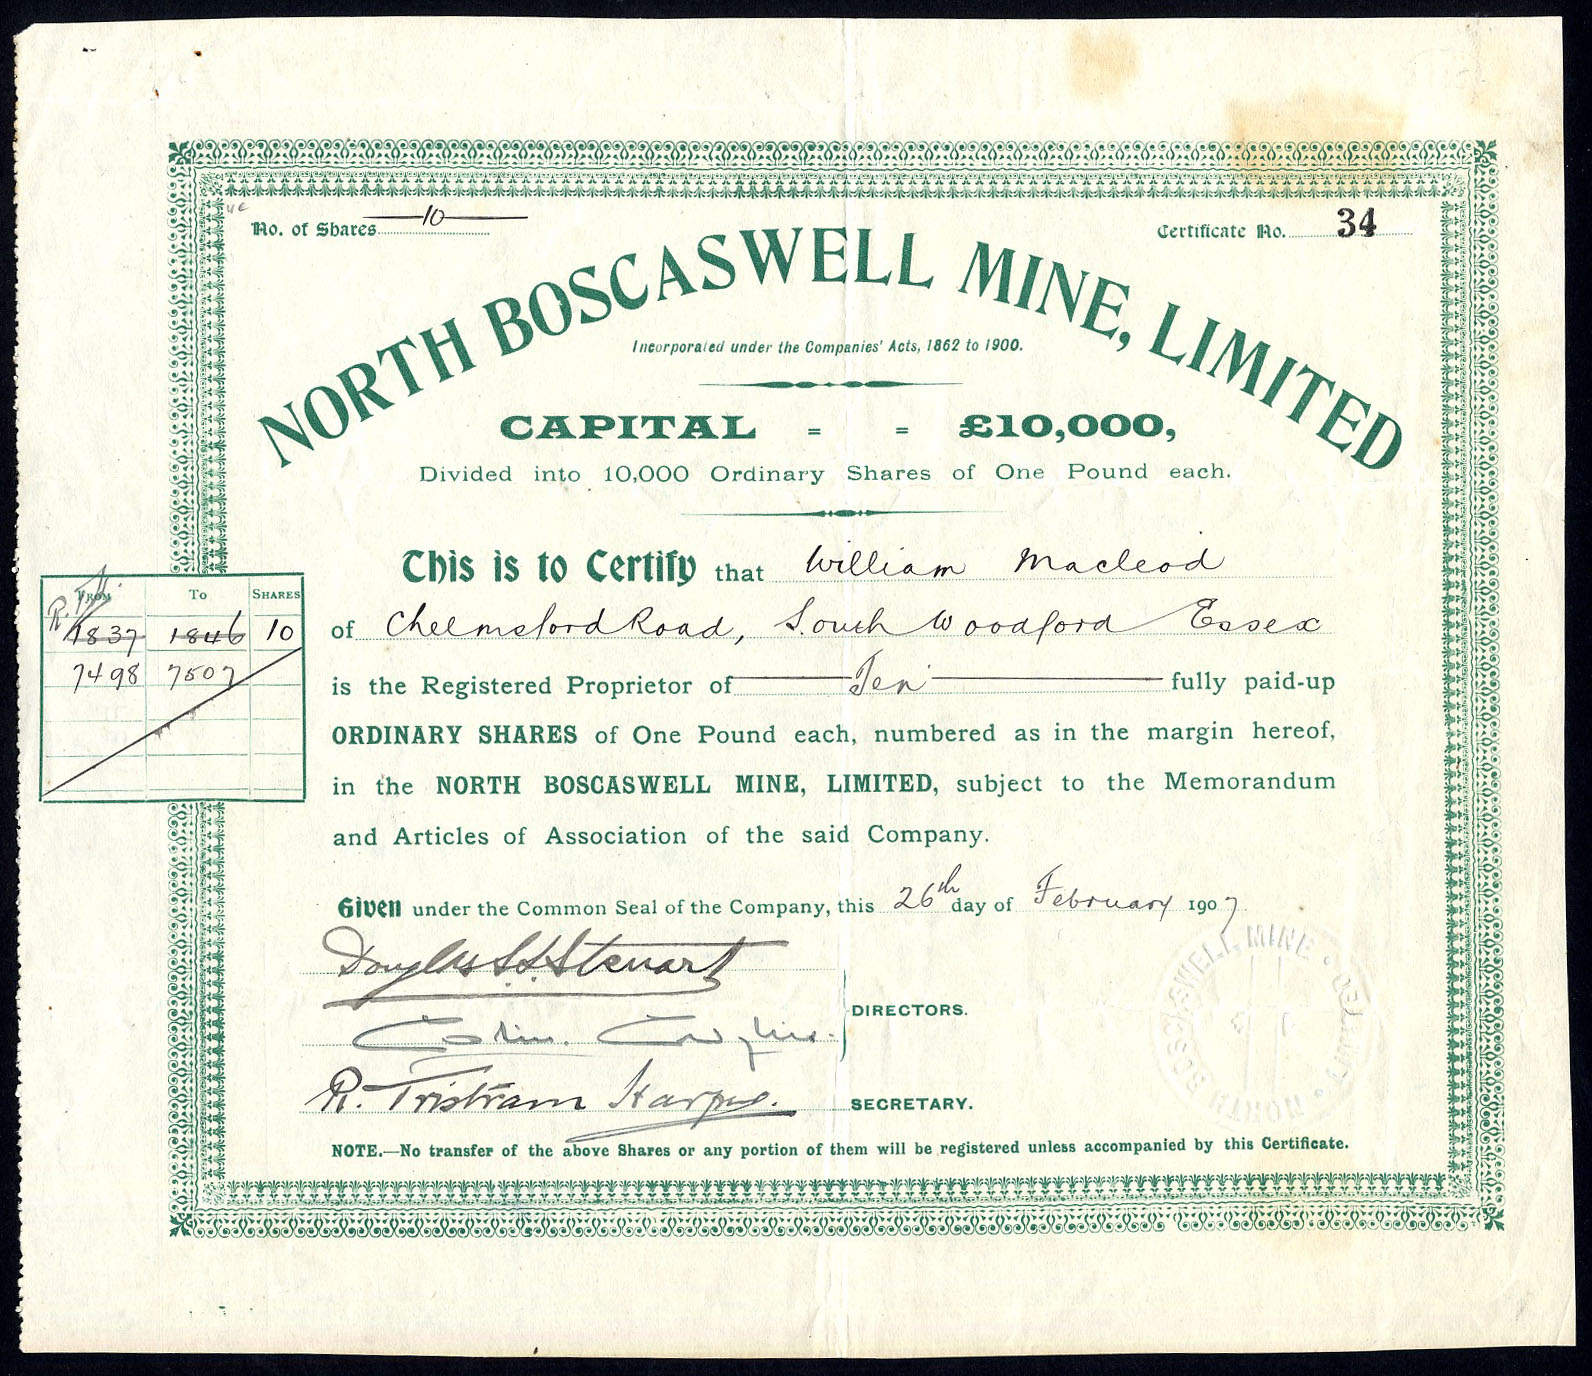 No. of Shares 10
Certificate No. 34
NORTH BOSCASWELL MINE, LIMITED
Incorporated under the Companies' Acts, 1862 to 1900.
CAPITAL = = £10,000,
Divided into 10,000 Ordinary Shares of One Pound each.
This is to Certify that William Macleod
of Chelmsford Road, South Woodford Essex
is the Registered Proprietor of Ten fully paid-up
ORDINARY SHARES of One Pound each, numbered as in the margin hereof,
in the NORTH BOSCASWELL MINE, LIMITED, subject to the Memorandum
and Articles of Association of the said Company.
FROM TO SHARES
1837 1846 10
7498 7507
Given under the Common Seal of the Company, this 26th day of February 1907
Douglas Stewart
DIRECTORS.
Colin
R. Tristram Harper.
SECRETARY.
NORTH BOSCASWELL MINE LIMITED
NOTE.—No transfer of the above Shares or any portion of them will be registered unless accompanied by this Certificate.